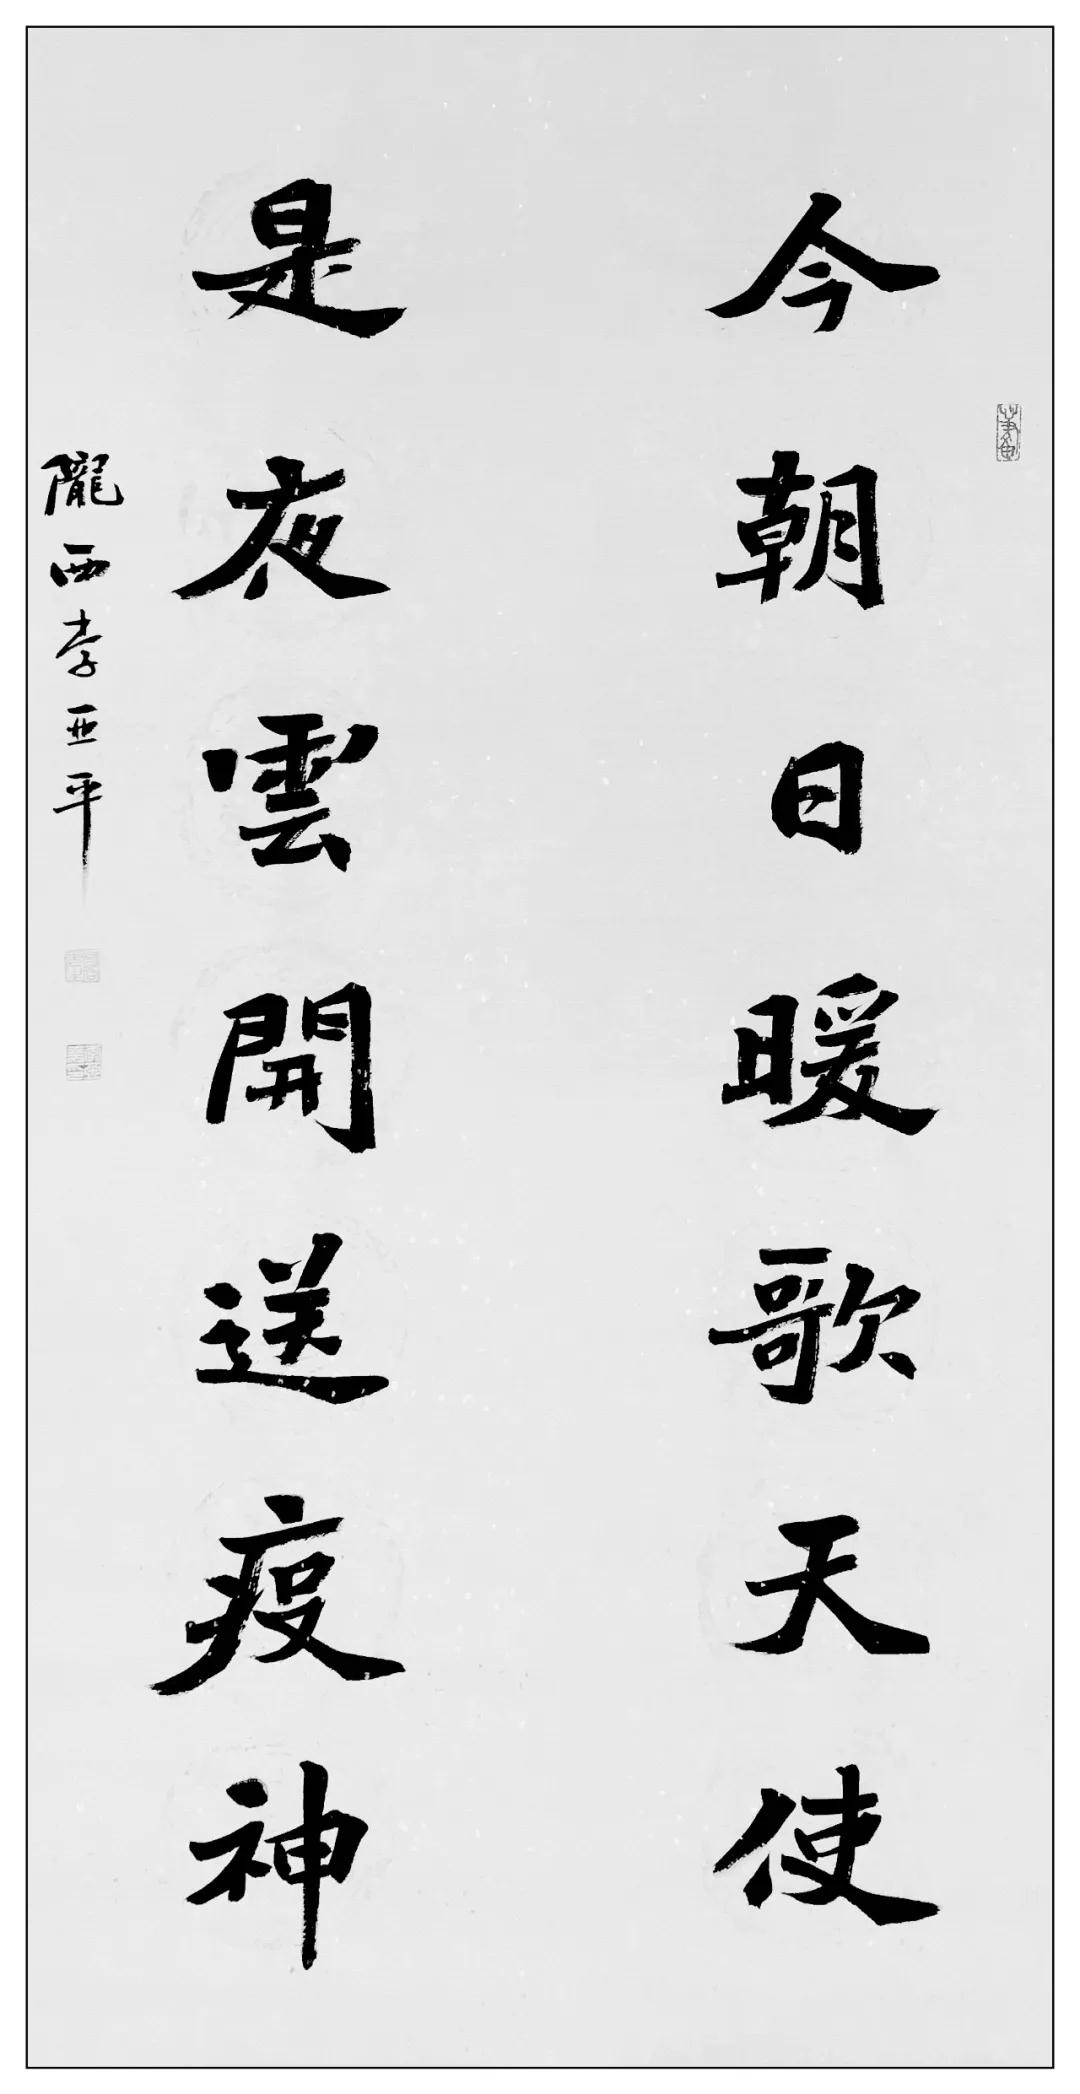 今朝日暖歌天使
是夜雲開送疫神
隴西李亚平